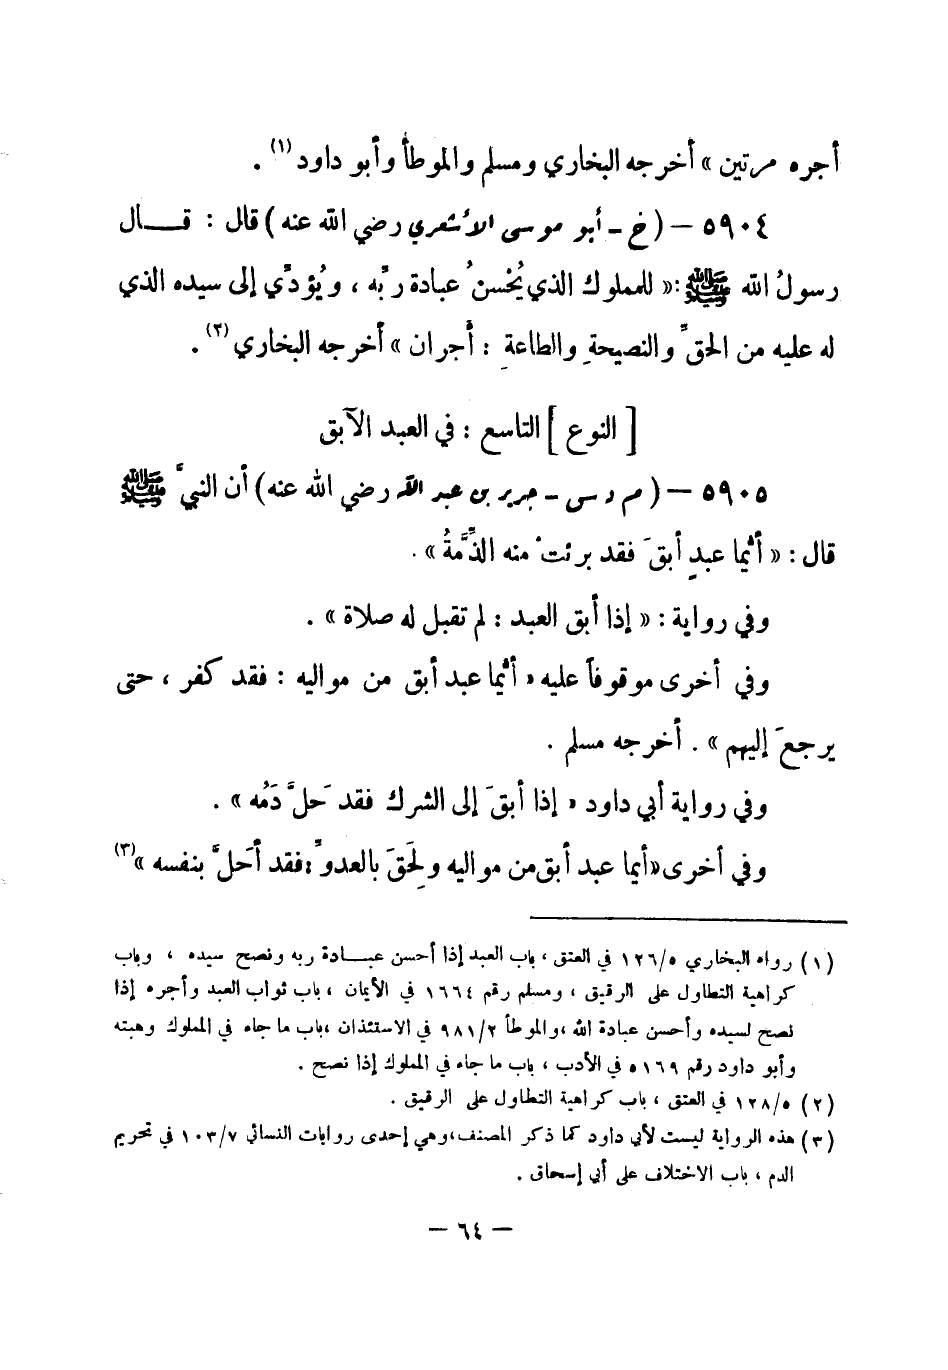 أجره مرتين » أخرجه البخاري ومسلم والموطأ وأبو داود (١) .
٥٩٠٤ – ( خ – أبو موسى الأشعري رضي الله عنه ) قال : قـــال
رسولُ الله ﷺ : « للمملوك الذي يُحْسنُ عبادة ربِّه ، ويُؤدِّي إلى سيده الذي
له عليه من الحقِّ والنصيحةِ والطاعةِ : أجران » أخرجه البخاري (٢) .
[ النوع ] التاسع : في العبد الآبق
٥٩٠٥ – ( م د س – جرير بن عبد الله رضي الله عنه ) أن النبيَّ ﷺ
قال : « أيُّما عبدٍ أبقَ فقد برئتْ منه الذِّمَّةُ » .
وفي رواية : « إذا أبق العبد : لم تقبل له صلاة » .
وفي أخرى موقوفاً عليه « أيُّما عبد أبق من مواليه : فقد كفر ، حتى
يرجعَ إليهم » . أخرجه مسلم .
وفي رواية أبي داود « إذا أبقَ إلى الشرك فقد حَلَّ دَمُه » .
وفي أخرى « أيما عبد أبق من مواليه ولَحِقَ بالعدوِّ ؛ فقد أحَلَّ بنفسه » (٣)
(١) رواه البخاري ٥/١٢٦ في العتق ، باب العبد إذا أحسن عبـــادة ربه ونصح سيده ، وباب
كراهية التطاول على الرقيق ، ومسلم رقم ١٦٦٤ في الأيمان ، باب ثواب العبد وأجره إذا
نصح لسيده وأحسن عبادة الله ، والموطأ ٢/٩٨١ في الاستئذان ، باب ما جاء في المملوك وهبته
وأبو داود رقم ٥١٦٩ في الأدب ، باب ما جاء في المملوك إذا نصح .
(٢) ٥/١٢٨ في العتق ، باب كراهية التطاول على الرقيق .
(٣) هذه الرواية ليست لأبي داود كما ذكر المصنف ، وهي إحدى روايات النسائي ٧/١٠٣ في تحريم
الدم ، باب الاختلاف على أبي إسحاق .
– ٦٤ –